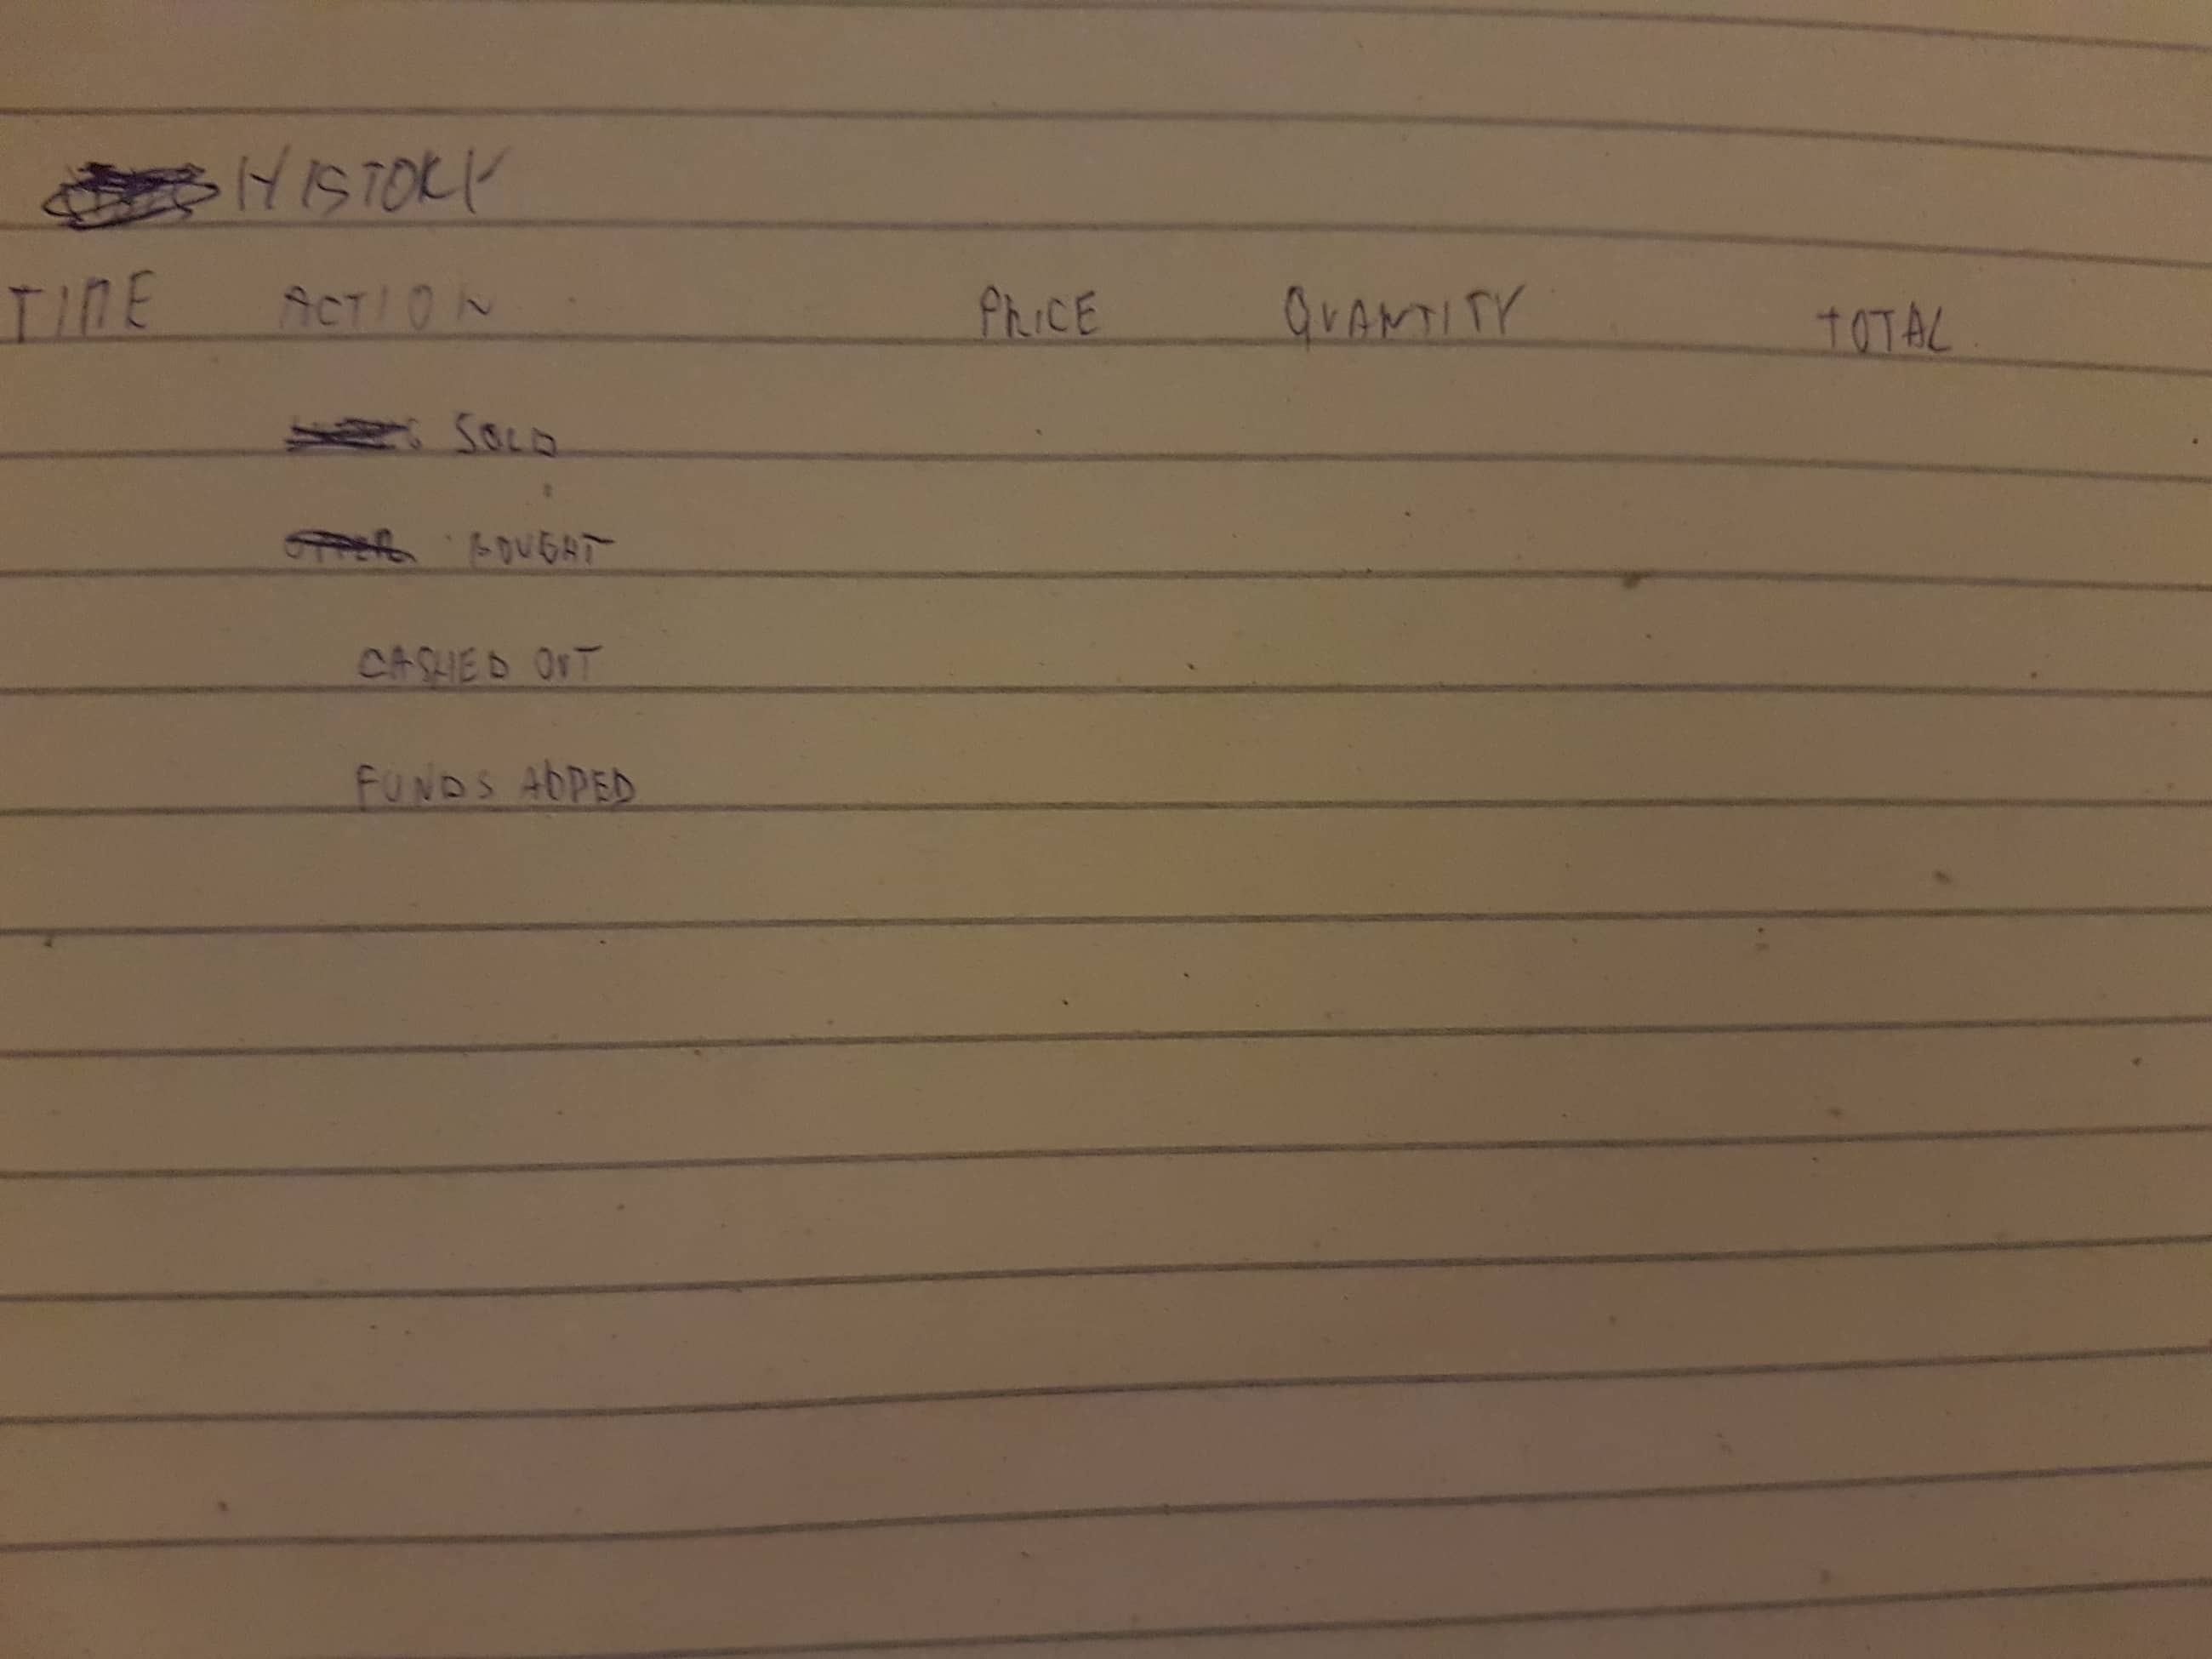 HISTORY
TIME ACTION PRICE QUANTITY TOTAL
SOLD
BOUGHT
CASHED OUT
FUNDS ADDED